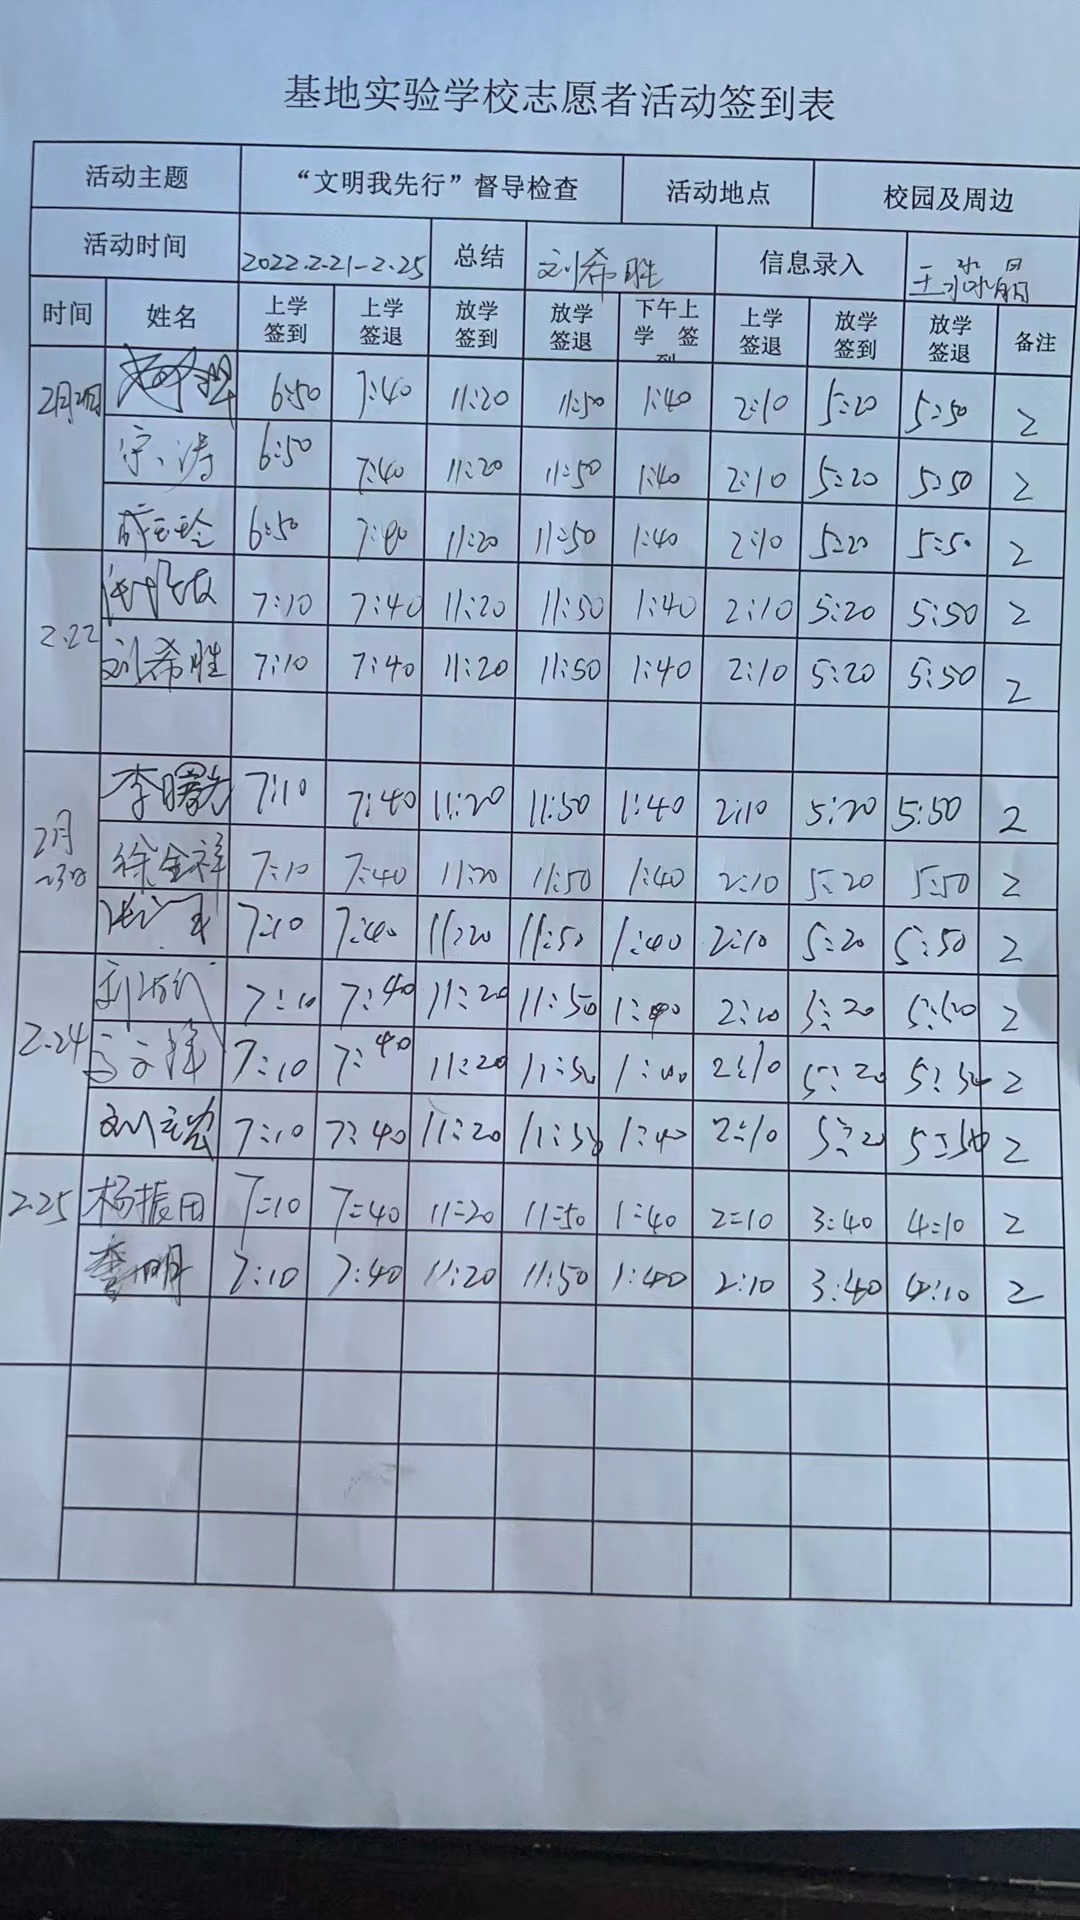 基地实验学校志愿者活动签到表
活动主题 “文明我先行”督导检查 活动地点 校园及周边
活动时间 2022.2.21-2.25 总结 刘希胜 信息录入 王冰晶
时间 姓名 上学签到 上学签退 放学签到 放学签退 下午上学 签到 上学签退 放学签到 放学签退 备注
2月21日 6:50 7:40 11:20 11:50 1:40 2:10 5:20 5:50 2
宗涛 6:50 7:40 11:20 11:50 1:40 2:10 5:20 5:50 2
6:50 7:40 11:20 11:50 1:40 2:10 5:20 5:50 2
2.22 7:10 7:40 11:20 11:50 1:40 2:10 5:20 5:50 2
刘希胜 7:10 7:40 11:20 11:50 1:40 2:10 5:20 5:50 2
李曙光 7:10 7:40 11:20 11:50 1:40 2:10 5:20 5:50 2
2月23日 徐金祥 7:10 7:40 11:20 11:50 1:40 2:10 5:20 5:50 2
7:10 7:40 11:20 11:50 1:40 2:10 5:20 5:50 2
7:10 7:40 11:20 11:50 1:40 2:10 5:20 5:50 2
2.24 7:10 7:40 11:20 11:50 1:40 2:10 5:20 5:50 2
7:10 7:40 11:20 11:50 1:40 2:10 5:20 5:50 2
2.25 杨振田 7:10 7:40 11:20 11:50 1:40 2:10 3:40 4:10 2
李明 7:10 7:40 11:20 11:50 1:40 2:10 3:40 4:10 2